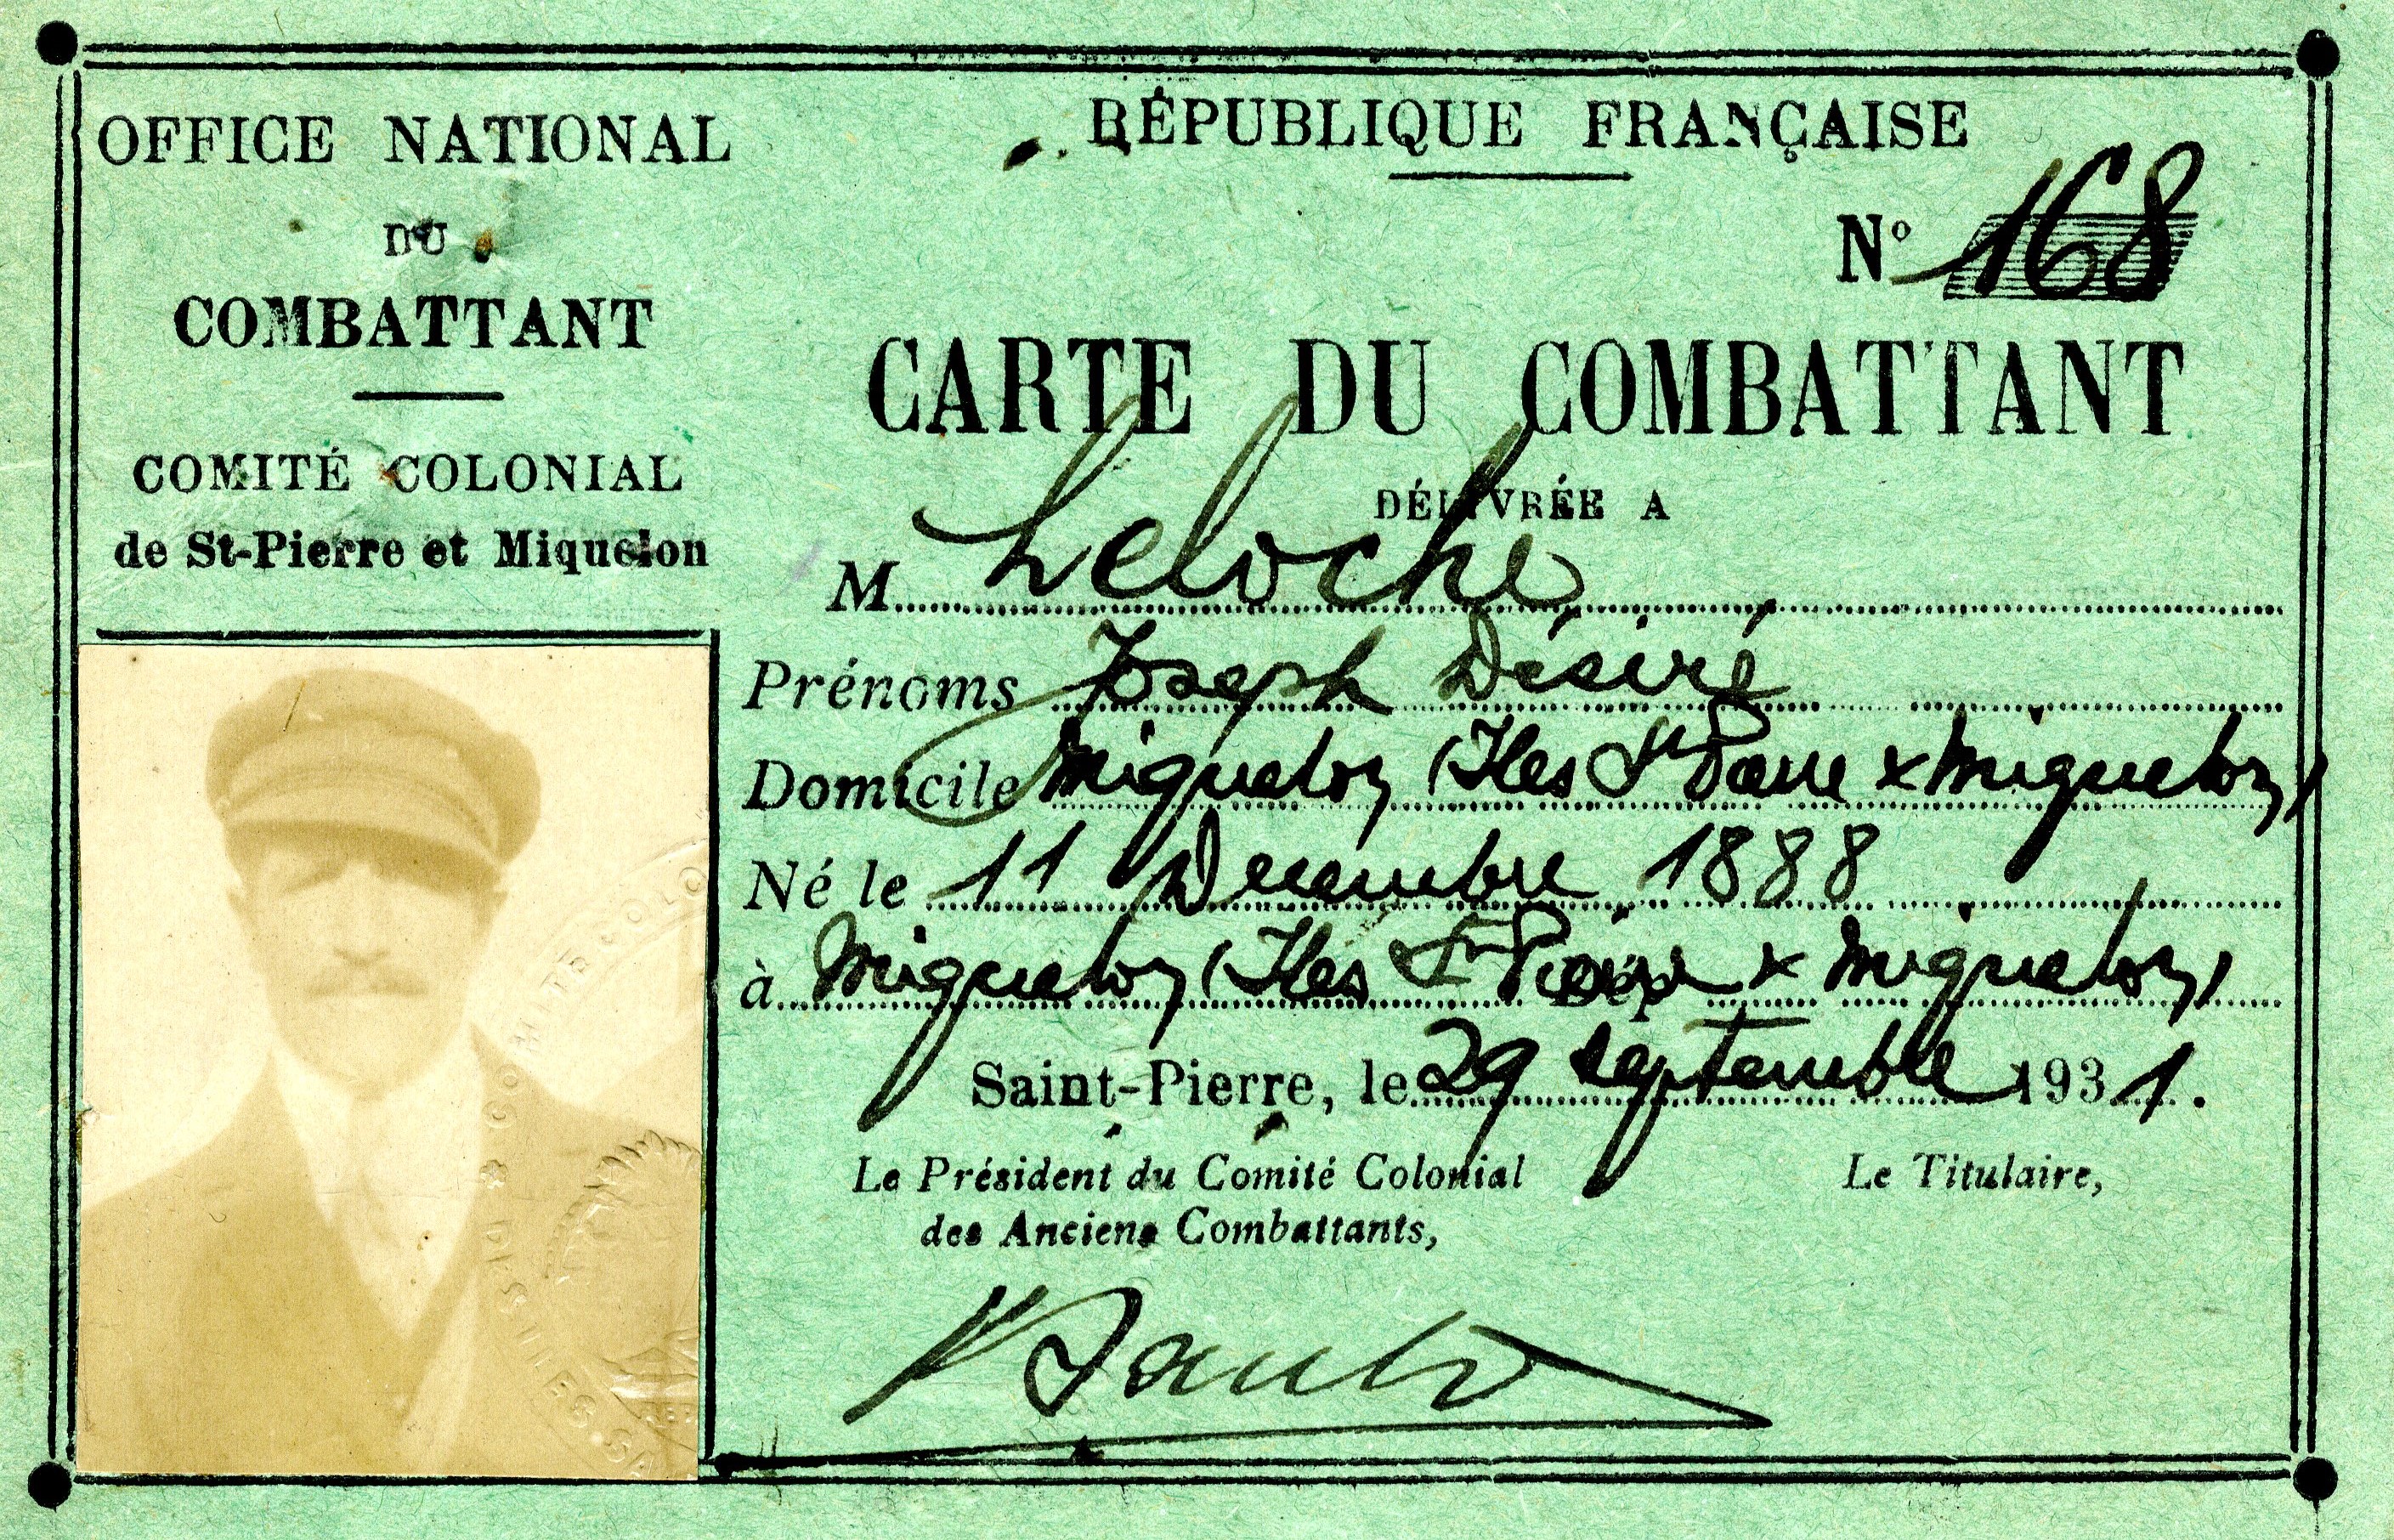 OFFICE NATIONAL
DU
COMBATTANT
COMITÉ COLONIAL
de St-Pierre et Miquelon
RÉPUBLIQUE FRANÇAISE
Nº 168
CARTE DU COMBATTANT
DÉLIVRÉE A
M. Leloche
Prénoms Joseph Désiré
Domicile Miquelon (Iles St Pierre & Miquelon)
Né le 11 Décembre 1888
à Miquelon (Iles St Pierre & Miquelon)
Saint-Pierre, le 29 septembre 1931.
Le Président du Comité Colonial
des Anciens Combattants,
Le Titulaire,